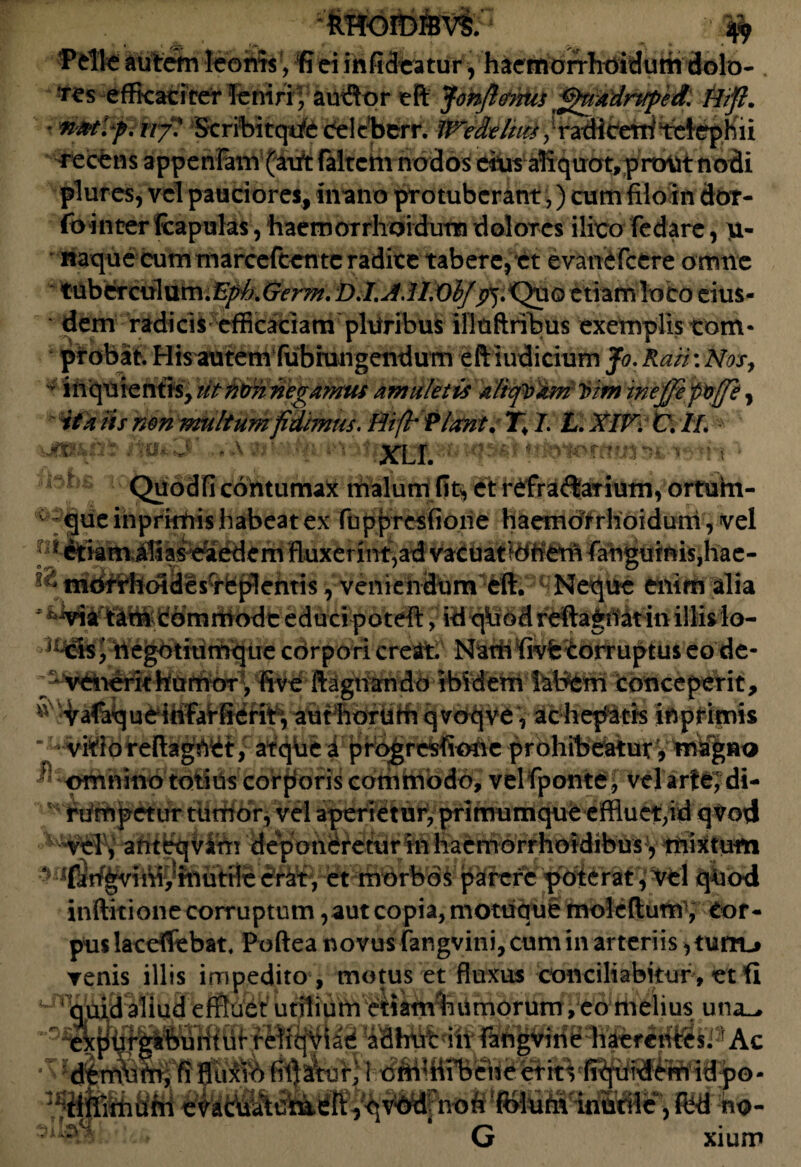 RHOIDIBVS. 49
Pelle autem leonis, si ei insideatur, haemorrhoidum dolo-
res efficaciter leniri, auctor est Jonstonus Quadruped. Hist.
nat. p. 117. Scribitque celeberr. Wedelius, radicem telephii
recens appensam (aut saltem nodos eius aliquot, prout nodi
plures, vel pauciores, in ano protuberant,) cum filo in dor-
so inter scapulas, haemorrhoidum dolores ilico sedare, u-
naque cum marcescente radice tabere, et evanescere omne
tuberculum. Eph. Germ. D.I.A.II.Obs 95. Quo etiam loco eius-
dem radicis efficaciam pluribus illustribus exemplis com-
probat. His autem subiungendum est iudicium Jo. Raii: Nos,
inquientis, ut non negamus amuletis aliqvam vim inesse posse,
ita iis non multum fidimus. Hist. Plant. T. I. L. XIV. C. II.
XLI.
Quod si contumax malum sit, et refractarium, ortum-
que inprimis habeat ex suppressione haemorrhoidum, vel
etiam alias eaedem fluxerint, ad vacuationem sanguinis, hae-
morrhoides replentis, veniendum est. Neque enim alia
via tam commode educi potest, id quod restagnat in illis lo-
cis, negotiumque corpori creat. Nam sive corruptus eo de-
venerit humor, sive stagnando ibidem labem conceperit,
vasaque infarserit, aut horum qvoqve, ac hepatis inprimis
vitio restagnet, atque a progressione prohibeatur, magno
omnino totius corporis commodo, vel sponte, vel arte, di-
rumpetur tumor, vel aperietur, primumque effluet, id qvod
vel, anteqvam deponeretur in haemorrhoidibus, mixtum
sangvini, inutile erat, et morbos parere poterat, vel quod
institione corruptum, aut copia, motuque molestum, cor-
pus lacessebat. Postea novus sangvini, cum in arteriis, tum
venis illis impedito, motus et fluxus conciliabitur, et si
quid aliud effluet utilium etiam humorum, eo melius una
expurgabuntur reliqviae adhuc in sangvine haerentes. Ac
demum, si fluxio sistatur, omnibene erit; siquidem id po-
tissimum evacuatum est, qvod non solum inutile, sed no-
G xium